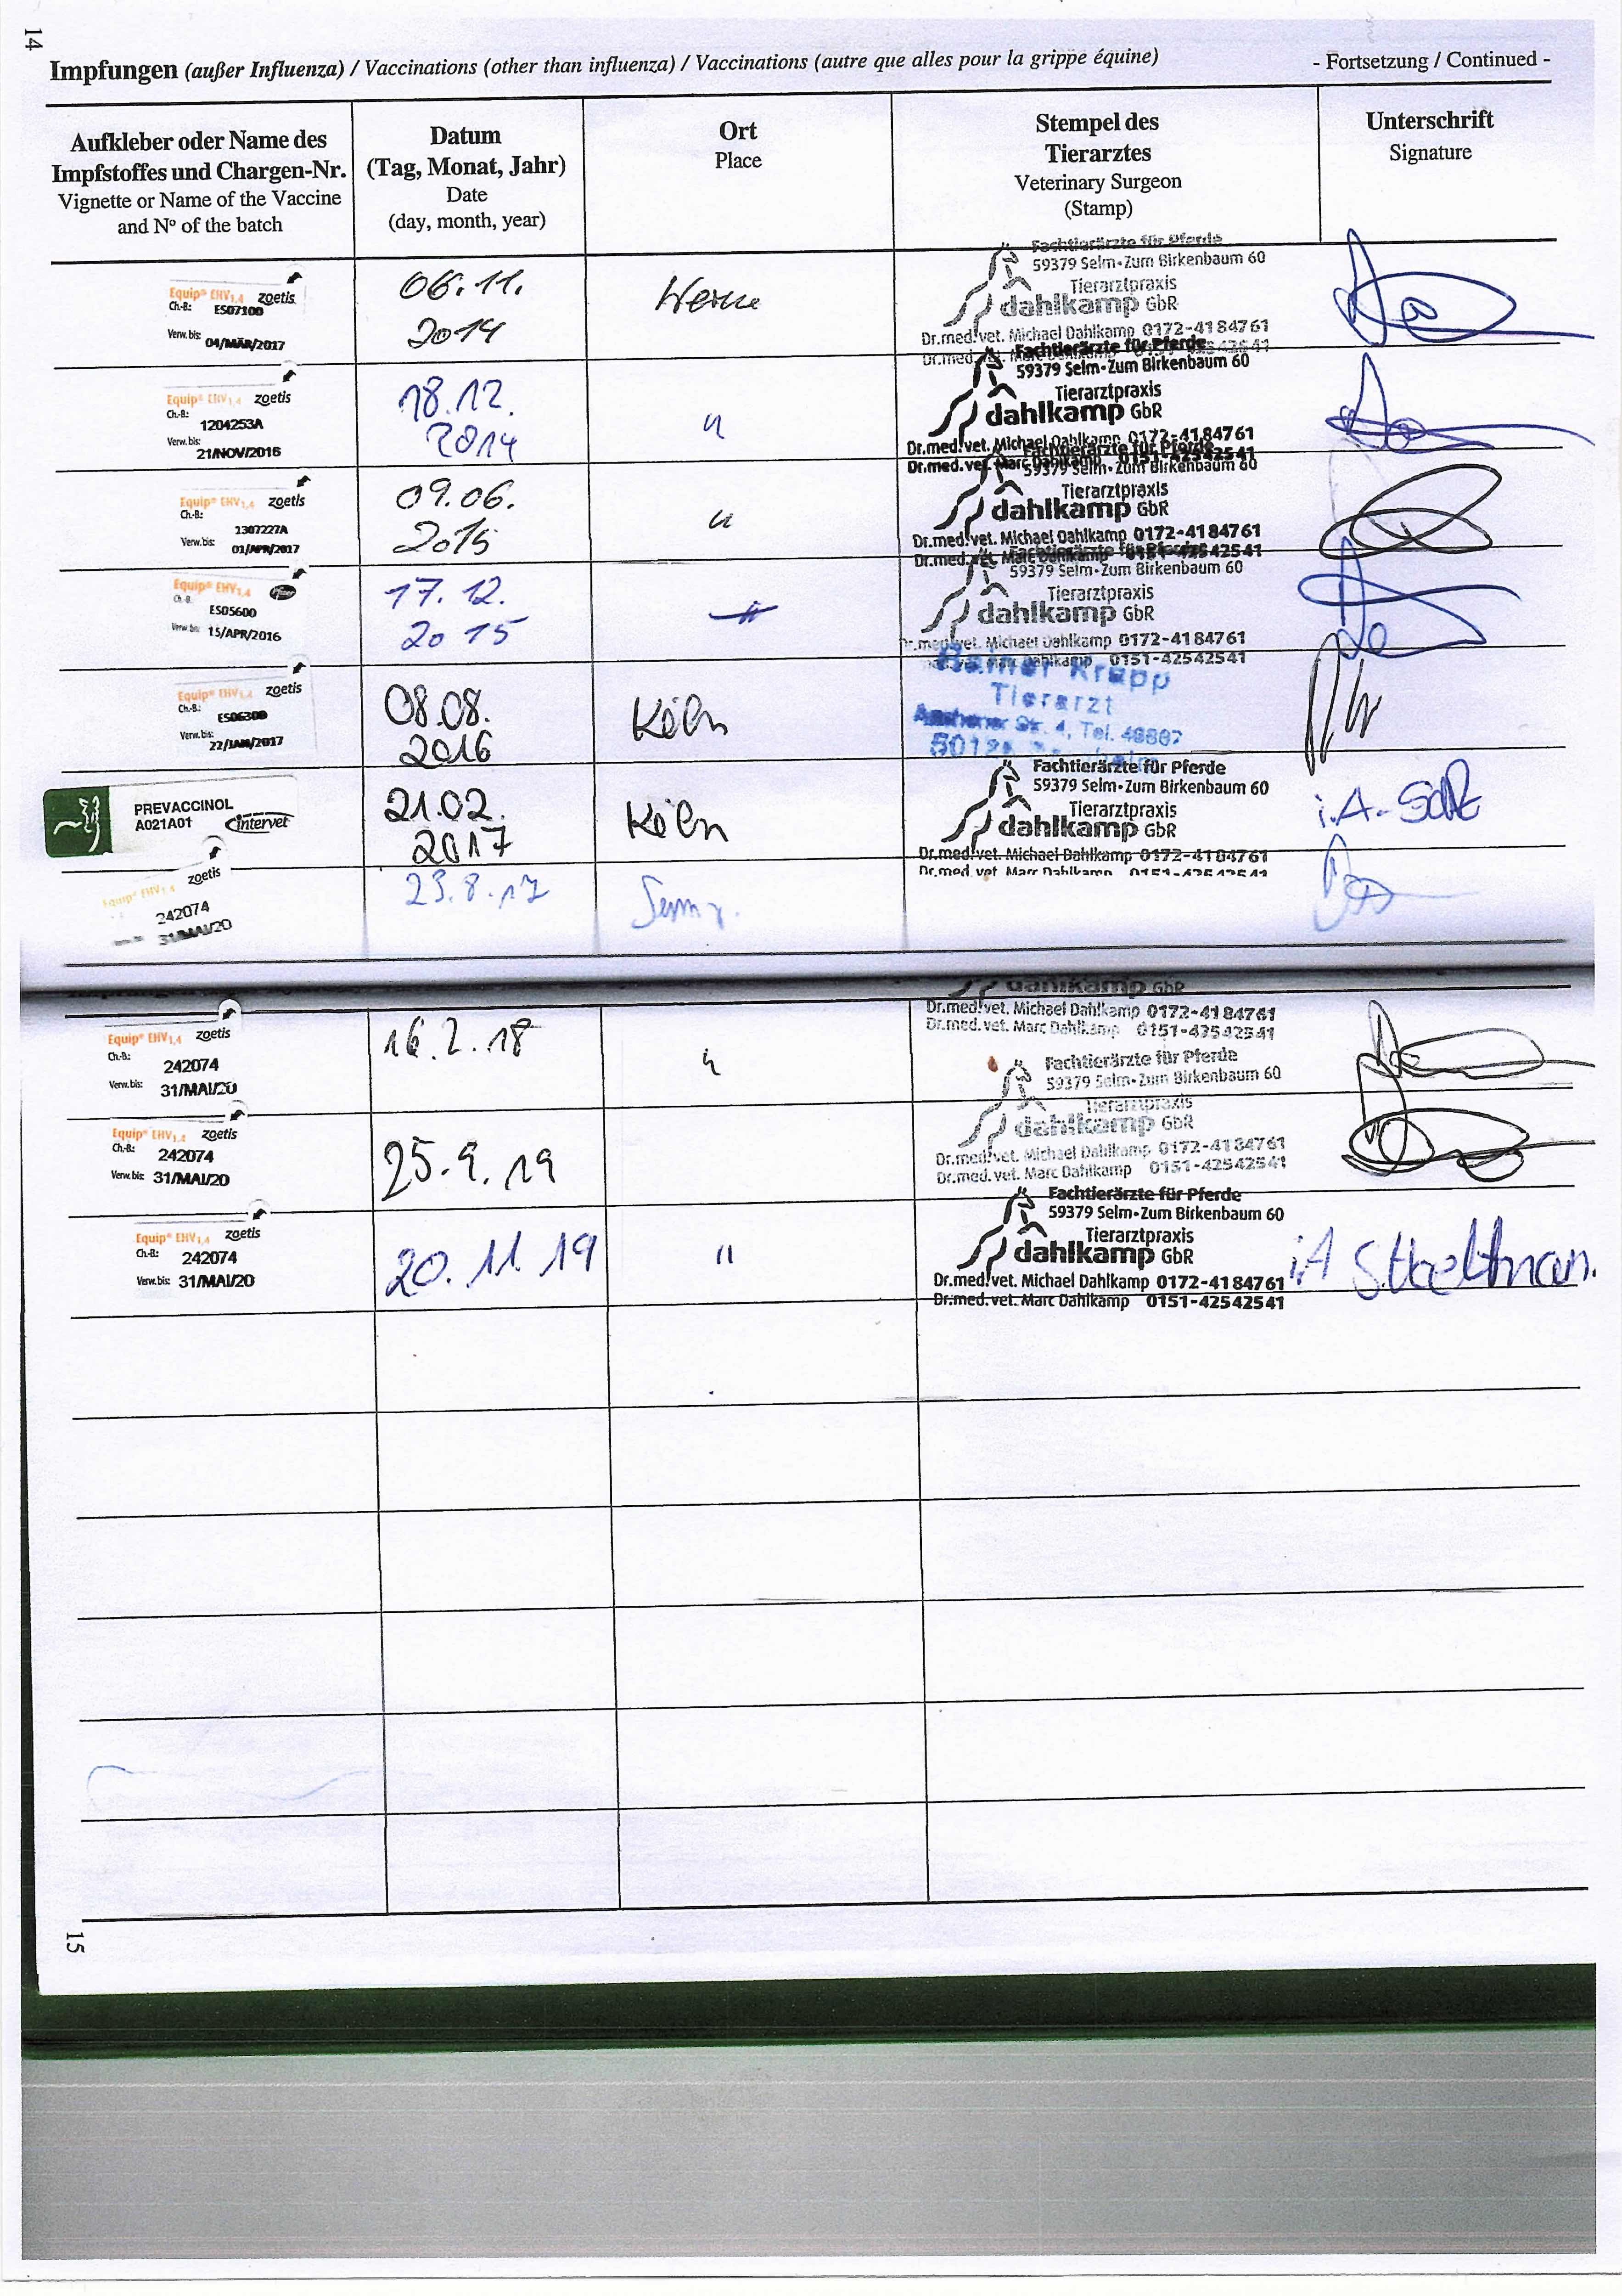 14
Impfungen (außer Influenza) / Vaccinations (other than influenza) / Vaccinations (autre que alles pour la grippe équine)
- Fortsetzung / Continued -
Aufkleber oder Name des
Impfstoffes und Chargen-Nr.
Vignette or Name of the Vaccine
and Nº of the batch
Datum
(Tag, Monat, Jahr)
Date
(day, month, year)
Ort
Place
Stempel des
Tierarztes
Veterinary Surgeon
(Stamp)
Unterschrift
Signature
Equip® EHV1,4 zoetis
Ch.-B.: ES07100
Verw. bis: 04/MÄR/2017
06.11.
2014
Werne
Fachtierärzte für Pferde
59379 Selm-Zum Birkenbaum 60
Tierarztpraxis
dahlkamp GbR
Dr.med.vet. Michael Dahlkamp 0172-4184761
Equip® EHV1,4 zoetis
Ch.-B.:
1204253A
Verw. bis:
21/NOV/2016
18.12.
2014
"
Fachtierärzte für Pferde
59379 Selm-Zum Birkenbaum 60
Tierarztpraxis
dahlkamp GbR
Dr.med.vet. Michael Dahlkamp 0172-4184761
Dr.med.vet. Marc Dahlkamp 0151-42542541
Equip® EHV1,4 zoetis
Ch.-B.:
1307227A
Verw. bis:
01/APR/2017
09.06.
2015
"
Fachtierärzte für Pferde
59379 Selm-Zum Birkenbaum 60
Tierarztpraxis
dahlkamp GbR
Dr.med.vet. Michael Dahlkamp 0172-4184761
Dr.med.vet. Marc Dahlkamp 0151-42542541
Equip® EHV1,4 Pfizer
Ch.-B.
ES05600
Verw. bis: 15/APR/2016
17.12.
2015
"
Fachtierärzte für Pferde
59379 Selm-Zum Birkenbaum 60
Tierarztpraxis
dahlkamp GbR
Dr.med.vet. Michael Dahlkamp 0172-4184761
Dr.med.vet. Marc Dahlkamp 0151-42542541
Equip® EHV1,4 zoetis
Ch.-B.:
ES06300
Verw. bis:
22/JAN/2017
08.08.
2016
Köln
Krapp
Tierarzt
Str. 4, Tel.
PREVACCINOL
A021A01 Intervet
21.02.
2017
Köln
Fachtierärzte für Pferde
59379 Selm-Zum Birkenbaum 60
Tierarztpraxis
dahlkamp GbR
Dr.med.vet. Michael Dahlkamp 0172-4184761
Dr.med.vet. Marc Dahlkamp 0151-42542541
i.A.
Equip® EHV1,4 zoetis
242074
31/MAI/20
23.8.17
dahlkamp GbR
Dr.med.vet. Michael Dahlkamp 0172-4184761
Dr.med.vet. Marc Dahlkamp 0151-42542541
Equip® EHV1,4 zoetis
Ch.-B.:
242074
Verw. bis: 31/MAI/20
16.2.18
"
Fachtierärzte für Pferde
59379 Selm-Zum Birkenbaum 60
Tierarztpraxis
dahlkamp GbR
Dr.med.vet. Michael Dahlkamp 0172-4184761
Dr.med.vet. Marc Dahlkamp 0151-42542541
Equip® EHV1,4 zoetis
Ch.-B.:
242074
Verw. bis: 31/MAI/20
25.9.19
Fachtierärzte für Pferde
59379 Selm-Zum Birkenbaum 60
Tierarztpraxis
dahlkamp GbR
Dr.med.vet. Michael Dahlkamp 0172-4184761
Dr.med.vet. Marc Dahlkamp 0151-42542541
Equip® EHV1,4 zoetis
Ch.-B.:
242074
Verw. bis: 31/MAI/20
20.11.19
"
i.A
15